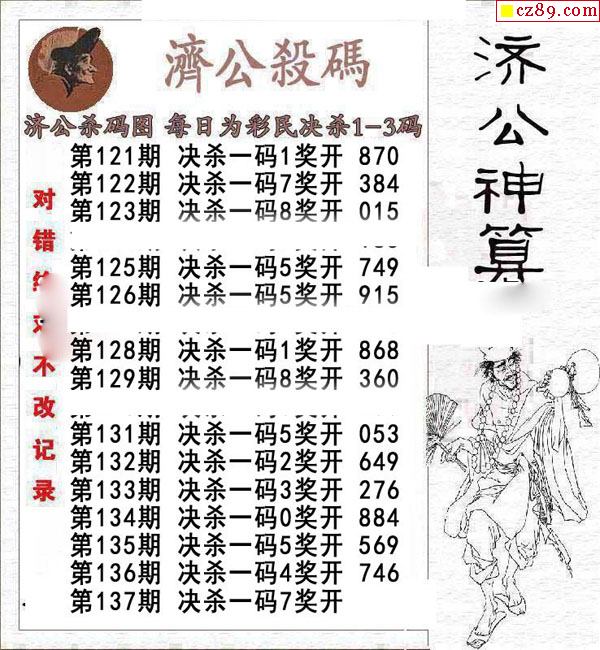 cz89.com
濟公殺碼
济公杀码图 每日为彩民决杀1-3码
第121期 决杀一码1奖开 870
第122期 决杀一码7奖开 384
第123期 决杀一码8奖开 015
第125期 决杀一码5奖开 749
第126期 决杀一码5奖开 915
第128期 决杀一码1奖开 868
第129期 决杀一码8奖开 360
第131期 决杀一码5奖开 053
第132期 决杀一码2奖开 649
第133期 决杀一码3奖开 276
第134期 决杀一码0奖开 884
第135期 决杀一码5奖开 569
第136期 决杀一码4奖开 746
第137期 决杀一码7奖开
对错
不改记录
济公神算